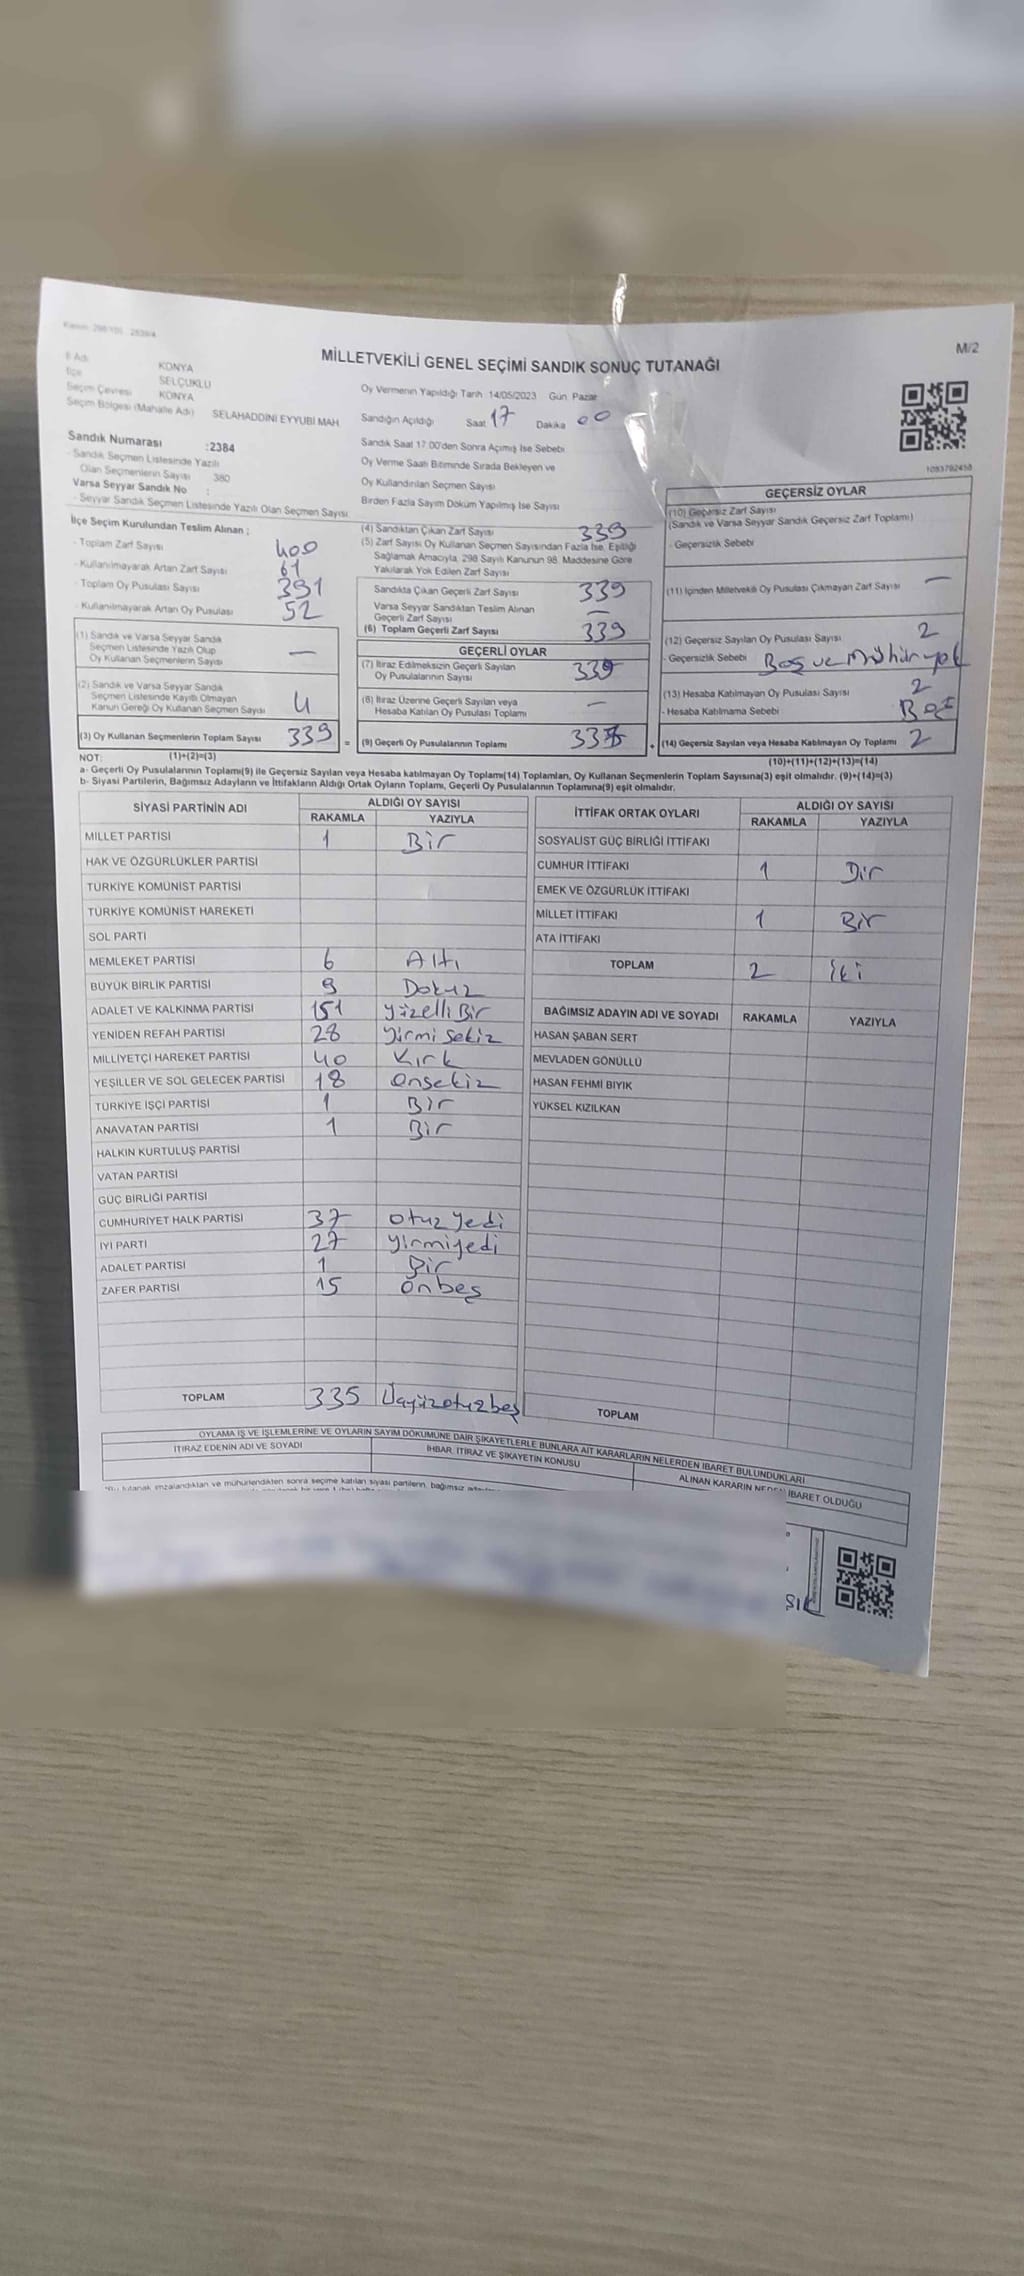 MİLLETVEKİLİ GENEL SEÇİMİ SANDIK SONUÇ TUTANAĞI
M/2
İl Adı KONYA
İlçe SELÇUKLU
Seçim Çevresi KONYA
Seçim Bölgesi (Mahalle Adı) SELAHADDİNİ EYYUBİ MAH
Sandık Numarası :2384
- Sandık Seçmen Listesinde Yazılı
Olan Seçmenlerin Sayısı 380
Varsa Seyyar Sandık No :
- Seyyar Sandık Seçmen Listesinde Yazılı Olan Seçmen Sayısı
Oy Vermenin Yapıldığı Tarih 14/05/2023 Gün Pazar
Sandığın Açıldığı Saat 17 Dakika 00
Sandık Saat 17.00'den Sonra Açımış İse Sebebi
Oy Verme Saati Bitiminde Sırada Bekleyen ve
Oy Kullandırılan Seçmen Sayısı
Birden Fazla Sayım Döküm Yapılmış İse Sayısı
1083792458
İlçe Seçim Kurulundan Teslim Alınan ;
- Toplam Zarf Sayısı 400
- Kullanılmayarak Artan Zarf Sayısı 61
- Toplam Oy Pusulası Sayısı 391
- Kullanılmayarak Artan Oy Pusulası 52
(1) Sandık ve Varsa Seyyar Sandık
Seçmen Listesinde Yazılı Olup
Oy Kullanan Seçmenlerin Sayısı —
(2) Sandık ve Varsa Seyyar Sandık
Seçmen Listesinde Kayıtlı Olmayan
Kanun Gereği Oy Kullanan Seçmen Sayısı 4
(3) Oy Kullanan Seçmenlerin Toplam Sayısı 339 =
(1)+(2)=(3)
(4) Sandıktan Çıkan Zarf Sayısı 339
(5) Zarf Sayısı Oy Kullanan Seçmen Sayısından Fazla İse, Eşitliği
Sağlamak Amacıyla, 298 Sayılı Kanunun 98. Maddesine Göre
Yakılarak Yok Edilen Zarf Sayısı
Sandıkta Çıkan Geçerli Zarf Sayısı 339
Varsa Seyyar Sandıktan Teslim Alınan
Geçerli Zarf Sayısı —
(6) Toplam Geçerli Zarf Sayısı 339
GEÇERLİ OYLAR
(7) İtiraz Edilmeksizin Geçerli Sayılan
Oy Pusulalarının Sayısı
(8) İtiraz Üzerine Geçerli Sayılan veya
Hesaba Katılan Oy Pusulası Toplamı —
(9) Geçerli Oy Pusulalarının Toplamı +
GEÇERSİZ OYLAR
(10) Geçersiz Zarf Sayısı
(Sandık ve Varsa Seyyar Sandık Geçersiz Zarf Toplamı)
- Geçersizlik Sebebi
(11) İçinden Milletvekili Oy Pusulası Çıkmayan Zarf Sayısı —
(12) Geçersiz Sayılan Oy Pusulası Sayısı 2
- Geçersizlik Sebebi Boş ve Mühür yok
(13) Hesaba Katılmayan Oy Pusulası Sayısı 2
- Hesaba Katılmama Sebebi Boş
(14) Geçersiz Sayılan veya Hesaba Katılmayan Oy Toplamı 2
(10)+(11)+(12)+(13)=(14)
NOT:
a- Geçerli Oy Pusulalarının Toplamı(9) ile Geçersiz Sayılan veya Hesaba katılmayan Oy Toplamı(14) Toplamları, Oy Kullanan Seçmenlerin Toplam Sayısına(3) eşit olmalıdır. (9)+(14)=(3)
b- Siyasi Partilerin, Bağımsız Adayların ve İttifakların Aldığı Ortak Oyların Toplamı, Geçerli Oy Pusulalarının Toplamına(9) eşit olmalıdır.
SİYASİ PARTİNİN ADI ALDIĞI OY SAYISI
RAKAMLA YAZIYLA
MİLLET PARTİSİ 1 Bir
HAK VE ÖZGÜRLÜKLER PARTİSİ
TÜRKİYE KOMÜNİST PARTİSİ
TÜRKİYE KOMÜNİST HAREKETİ
SOL PARTİ
MEMLEKET PARTİSİ 6 Altı
BÜYÜK BİRLİK PARTİSİ 9 Dokuz
ADALET VE KALKINMA PARTİSİ 151 yüzelli Bir
YENİDEN REFAH PARTİSİ 28 yirmi sekiz
MİLLİYETÇİ HAREKET PARTİSİ 40 Kırk
YEŞİLLER VE SOL GELECEK PARTİSİ 18 Onsekiz
TÜRKİYE İŞÇİ PARTİSİ 1 Bir
ANAVATAN PARTİSİ 1 Bir
HALKIN KURTULUŞ PARTİSİ
VATAN PARTİSİ
GÜÇ BİRLİĞİ PARTİSİ
CUMHURİYET HALK PARTİSİ 37 otuz yedi
İYİ PARTİ 27 yirmiyedi
ADALET PARTİSİ 1 Bir
ZAFER PARTİSİ 15 onbeş
TOPLAM 335 Üçyüzotuzbeş
İTTİFAK ORTAK OYLARI ALDIĞI OY SAYISI
RAKAMLA YAZIYLA
SOSYALİST GÜÇ BİRLİĞİ İTTİFAKI
CUMHUR İTTİFAKI 1 Bir
EMEK VE ÖZGÜRLÜK İTTİFAKI
MİLLET İTTİFAKI 1 Bir
ATA İTTİFAKI
TOPLAM 2 İki
BAĞIMSIZ ADAYIN ADI VE SOYADI RAKAMLA YAZIYLA
HASAN ŞABAN SERT
MEVLADEN GÖNÜLLÜ
HASAN FEHMİ BIYIK
YÜKSEL KIZILKAN
TOPLAM
OYLAMA İŞ VE İŞLEMLERİNE VE OYLARIN SAYIM DÖKÜMÜNE DAİR ŞİKAYETLERLE BUNLARA AİT KARARLARIN NELERDEN İBARET BULUNDUKLARI
İTİRAZ EDENİN ADI VE SOYADI
İHBAR, İTİRAZ VE ŞİKAYETİN KONUSU
ALINAN KARARIN İBARET OLDUĞU
imzalandıktan ve mühürlendikten sonra seçime katılan siyasi partilerin, bağımsız